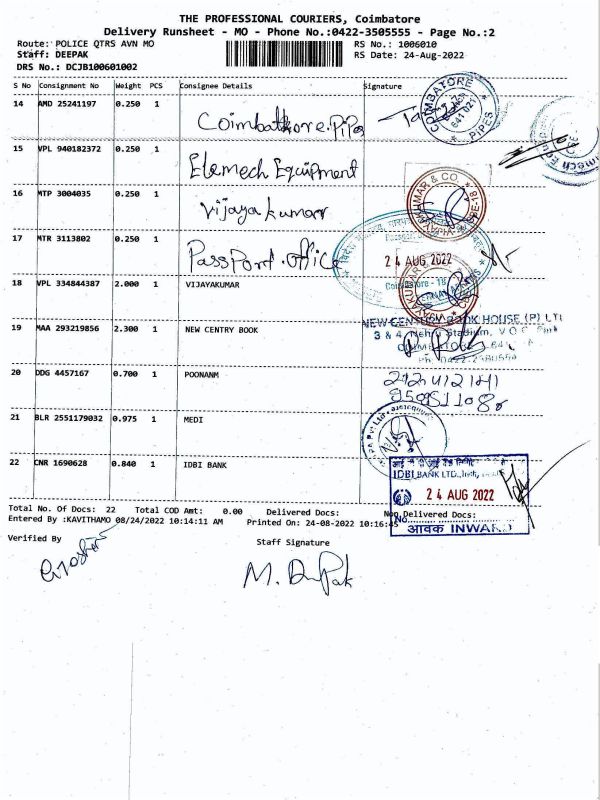 THE PROFESSIONAL COURIERS, Coimbatore
Delivery Runsheet - MO - Phone No.:0422-3505555 - Page No.:2
Route: POLICE QTRS AVN MO
RS No.: 1006010
Staff: DEEPAK
RS Date: 24-Aug-2022
DRS No.: DCJB100601002
S No Consignment No Weight PCS Consignee Details Signature
14 AMD 25241197 0.250 1
Coimbathore.Pipe
COIMBATORE PIPES
641 021
15 VPL 940182372 0.250 1
Elemech Equipment
16 MTP 3004035 0.250 1
Vijayakumar
17 MTR 3113802 0.250 1
PassPort.office
24 AUG 2022
18 VPL 334844387 2.000 1 VIJAYAKUMAR
19 MAA 293219856 2.300 1 NEW CENTRY BOOK
NEW CENTURY BOOK HOUSE (P) LTD
3 & 4, Nehru Stadium, V.O.C.
20 DDG 4457167 0.700 1 POONANM
21 BLR 2551179032 0.975 1 MEDI
22 CNR 1690628 0.840 1 IDBI BANK
IDBI BANK LTD.,
24 AUG 2022
No.
आवक INWARD
Total No. Of Docs: 22 Total COD Amt: 0.00 Delivered Docs: Non Delivered Docs:
Entered By :KAVITHAMO 08/24/2022 10:14:11 AM Printed On: 24-08-2022 10:16:45
Verified By
Staff Signature
M. Deepak